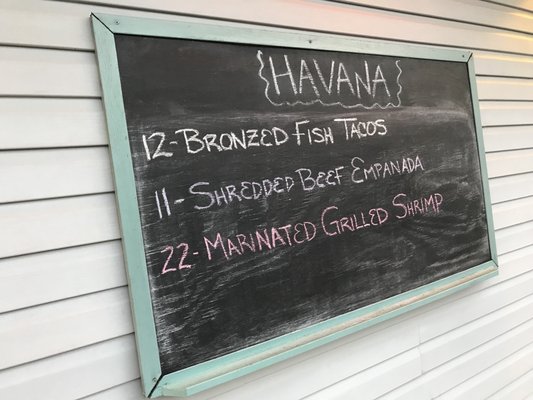 HAVANA
12-BRONZED FISH TACOS
11-SHREDDED BEEF EMPANADA
22-MARINATED GRILLED SHRIMP